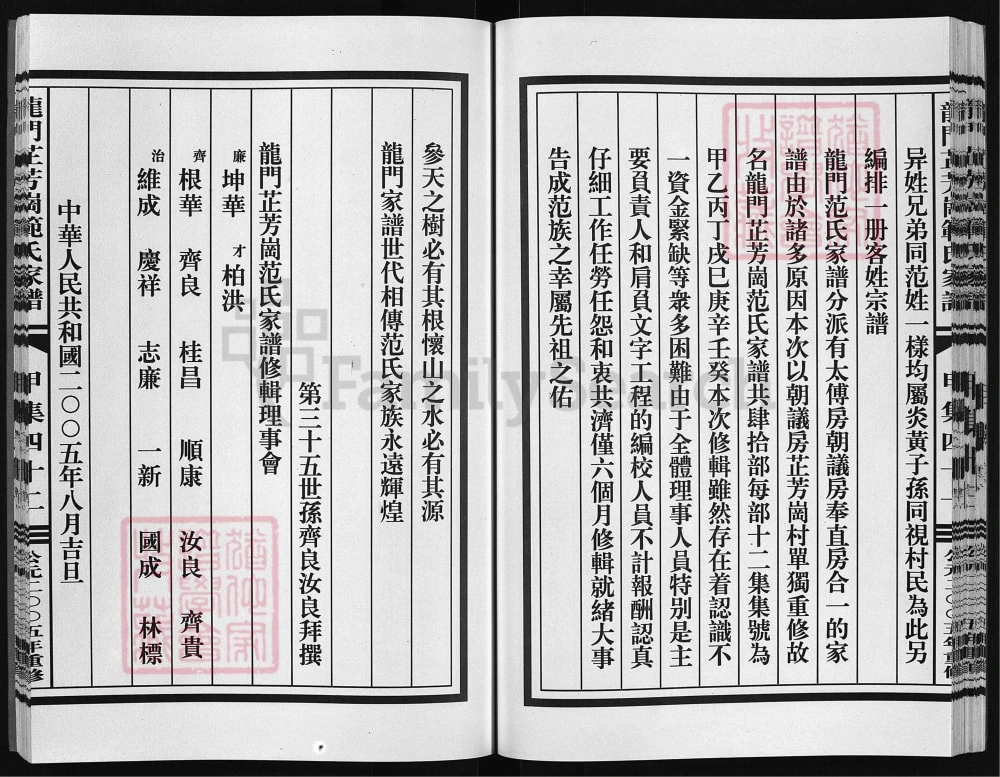 异姓兄弟同范姓一樣均屬炎黃子孫同視村民為此另
編排一册客姓宗譜
龍門范氏家譜分派有太傅房朝議房奉直房合一的家
譜由於諸多原因本次以朝議房芷芳崗村單獨重修故
名龍門芷芳崗范氏家譜共肆拾部每部十二集集號為
甲乙丙丁戌巳庚辛壬癸本次修輯雖然存在着認識不
一資金緊缺等衆多困難由于全體理事人員特别是主
要負責人和肩負文字工程的編校人員不計報酬認真
仔細工作任勞任怨和衷共濟僅六個月修輯就緒大事
告成范族之幸屬先祖之佑
參天之樹必有其根懷山之水必有其源
龍門家譜世代相傳范氏家族永遠輝煌
第三十五世孫齊良汝良拜撰
龍門芷芳崗范氏家譜修輯理事會
廉坤華 才柏洪
齊根華 齊良 桂昌 順康 汝良 齊貴
治維成 慶祥 志廉 一新 國成 林標
中華人民共和國二〇〇五年八月吉旦
龍門芷芳崗範氏家譜 甲集四十二 公元二〇〇五年重修
FamilySearch